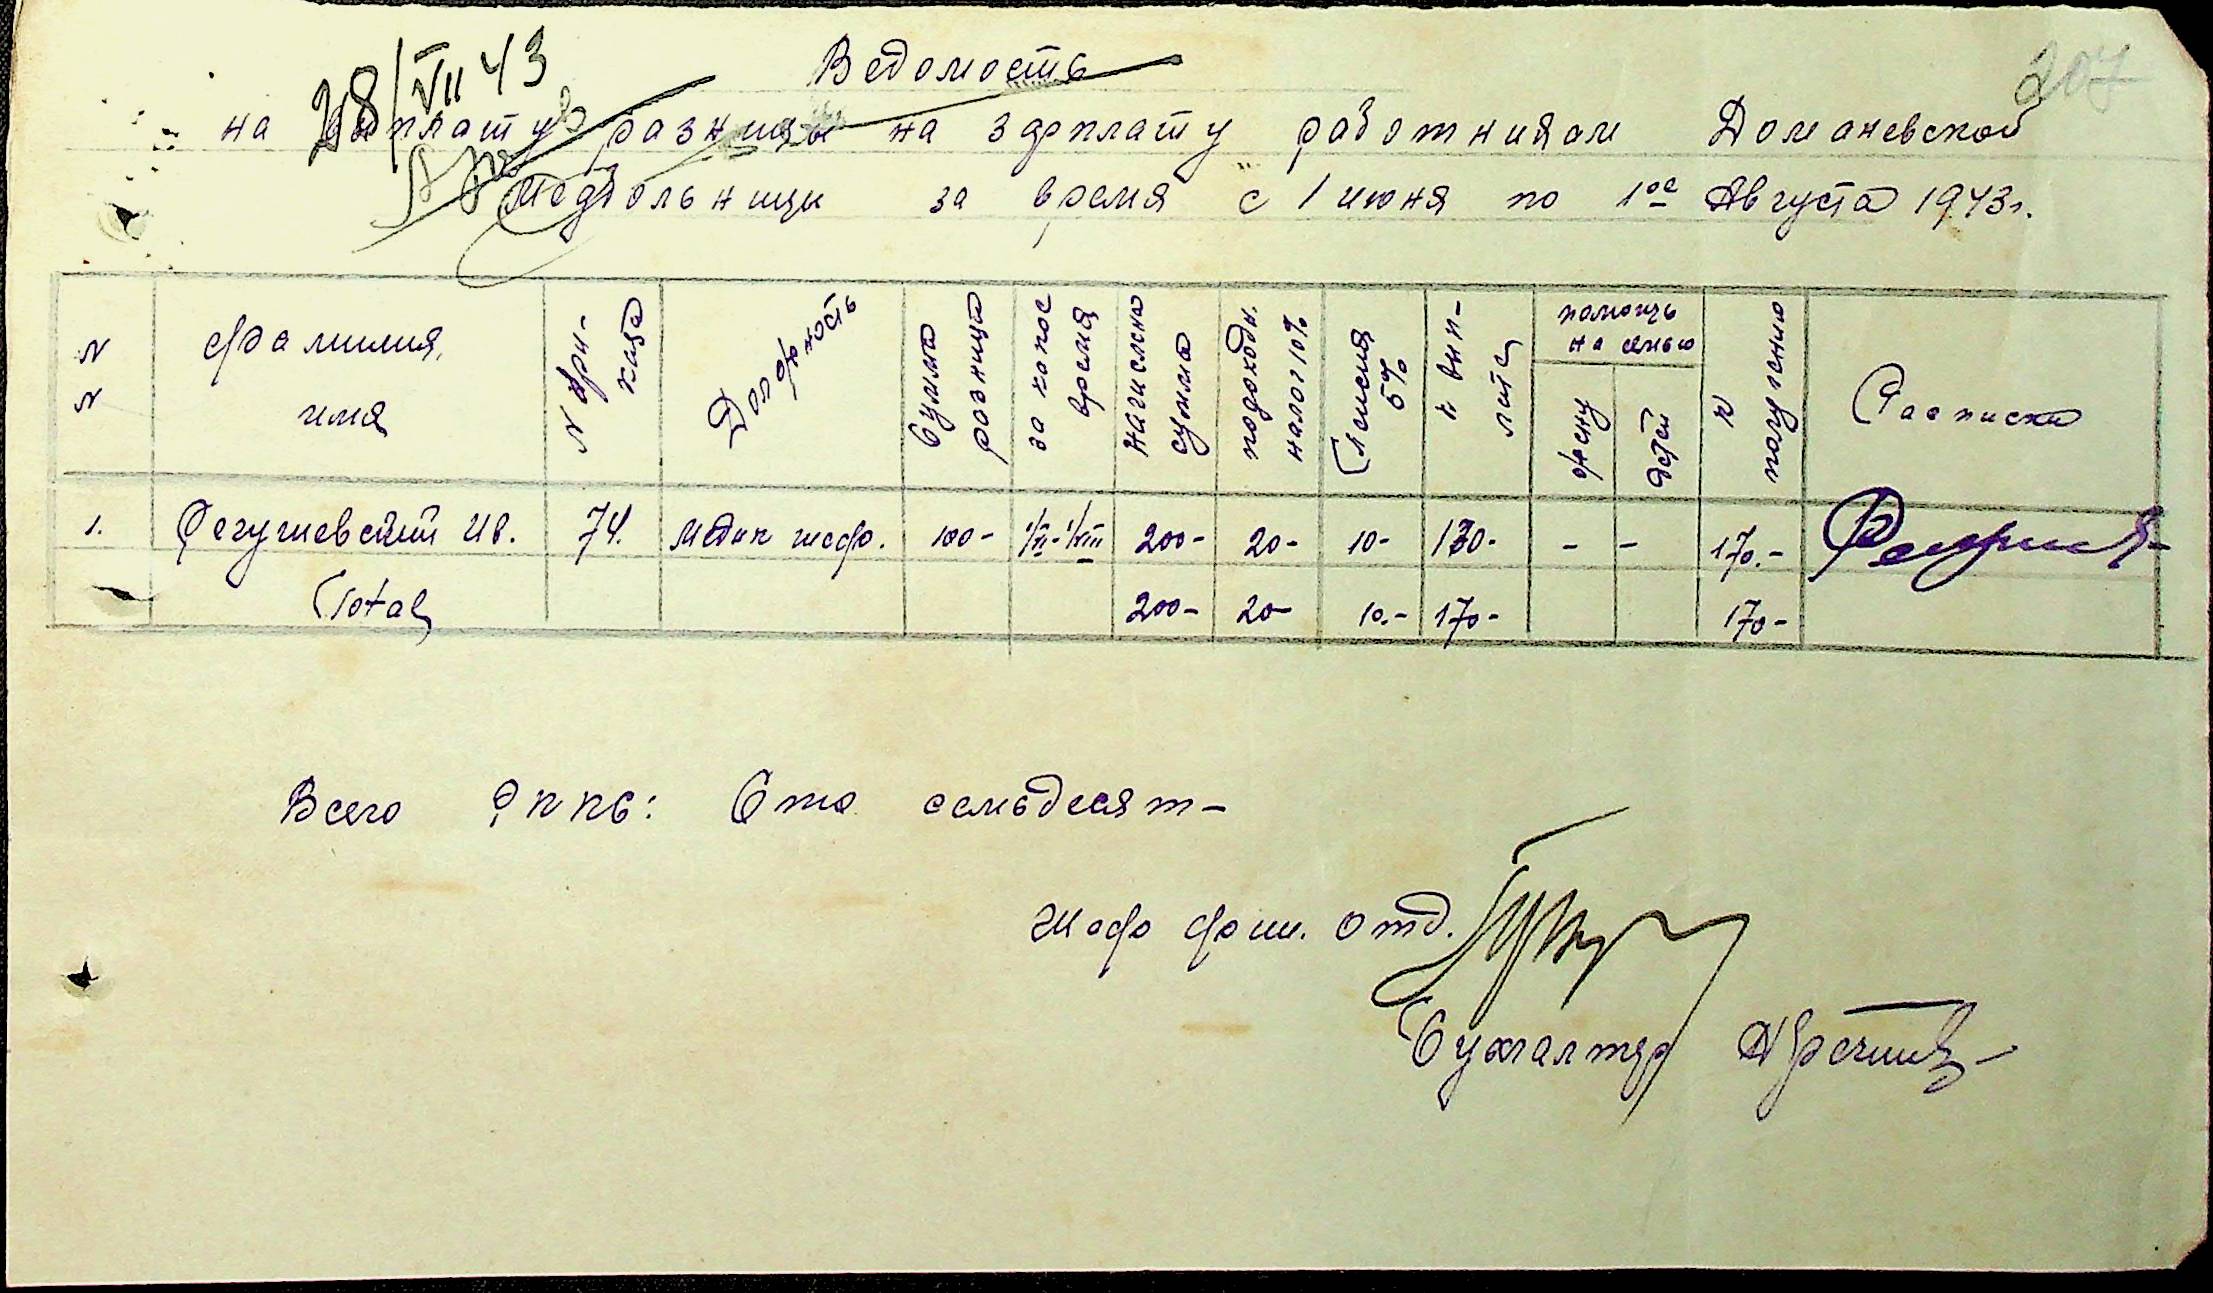 207
28/VII 43
Ведомость
на выплату разницы на зарплату работникам Доманевской
Медбольницы за время с 1 июня по 1ое Августа 1943 г.
N N
фамилия, имя
N приказа
Должность
Сумма разницы
за какое время
Начислено сумма
подоходн. налог 10%
Пенсия 5%
к выплате
помощь на семью
жену
детей
к получению
Расписка
1. Фегушевский Ив. 74. Медик шеф. 100- 1/VI-1/VIII 200- 20- 10- 170- - - 170.-
Total 200- 20- 10.- 170- 170-
Всего РККС: Сто семьдесят-
Шеф фин. отд.
Бухгалтер